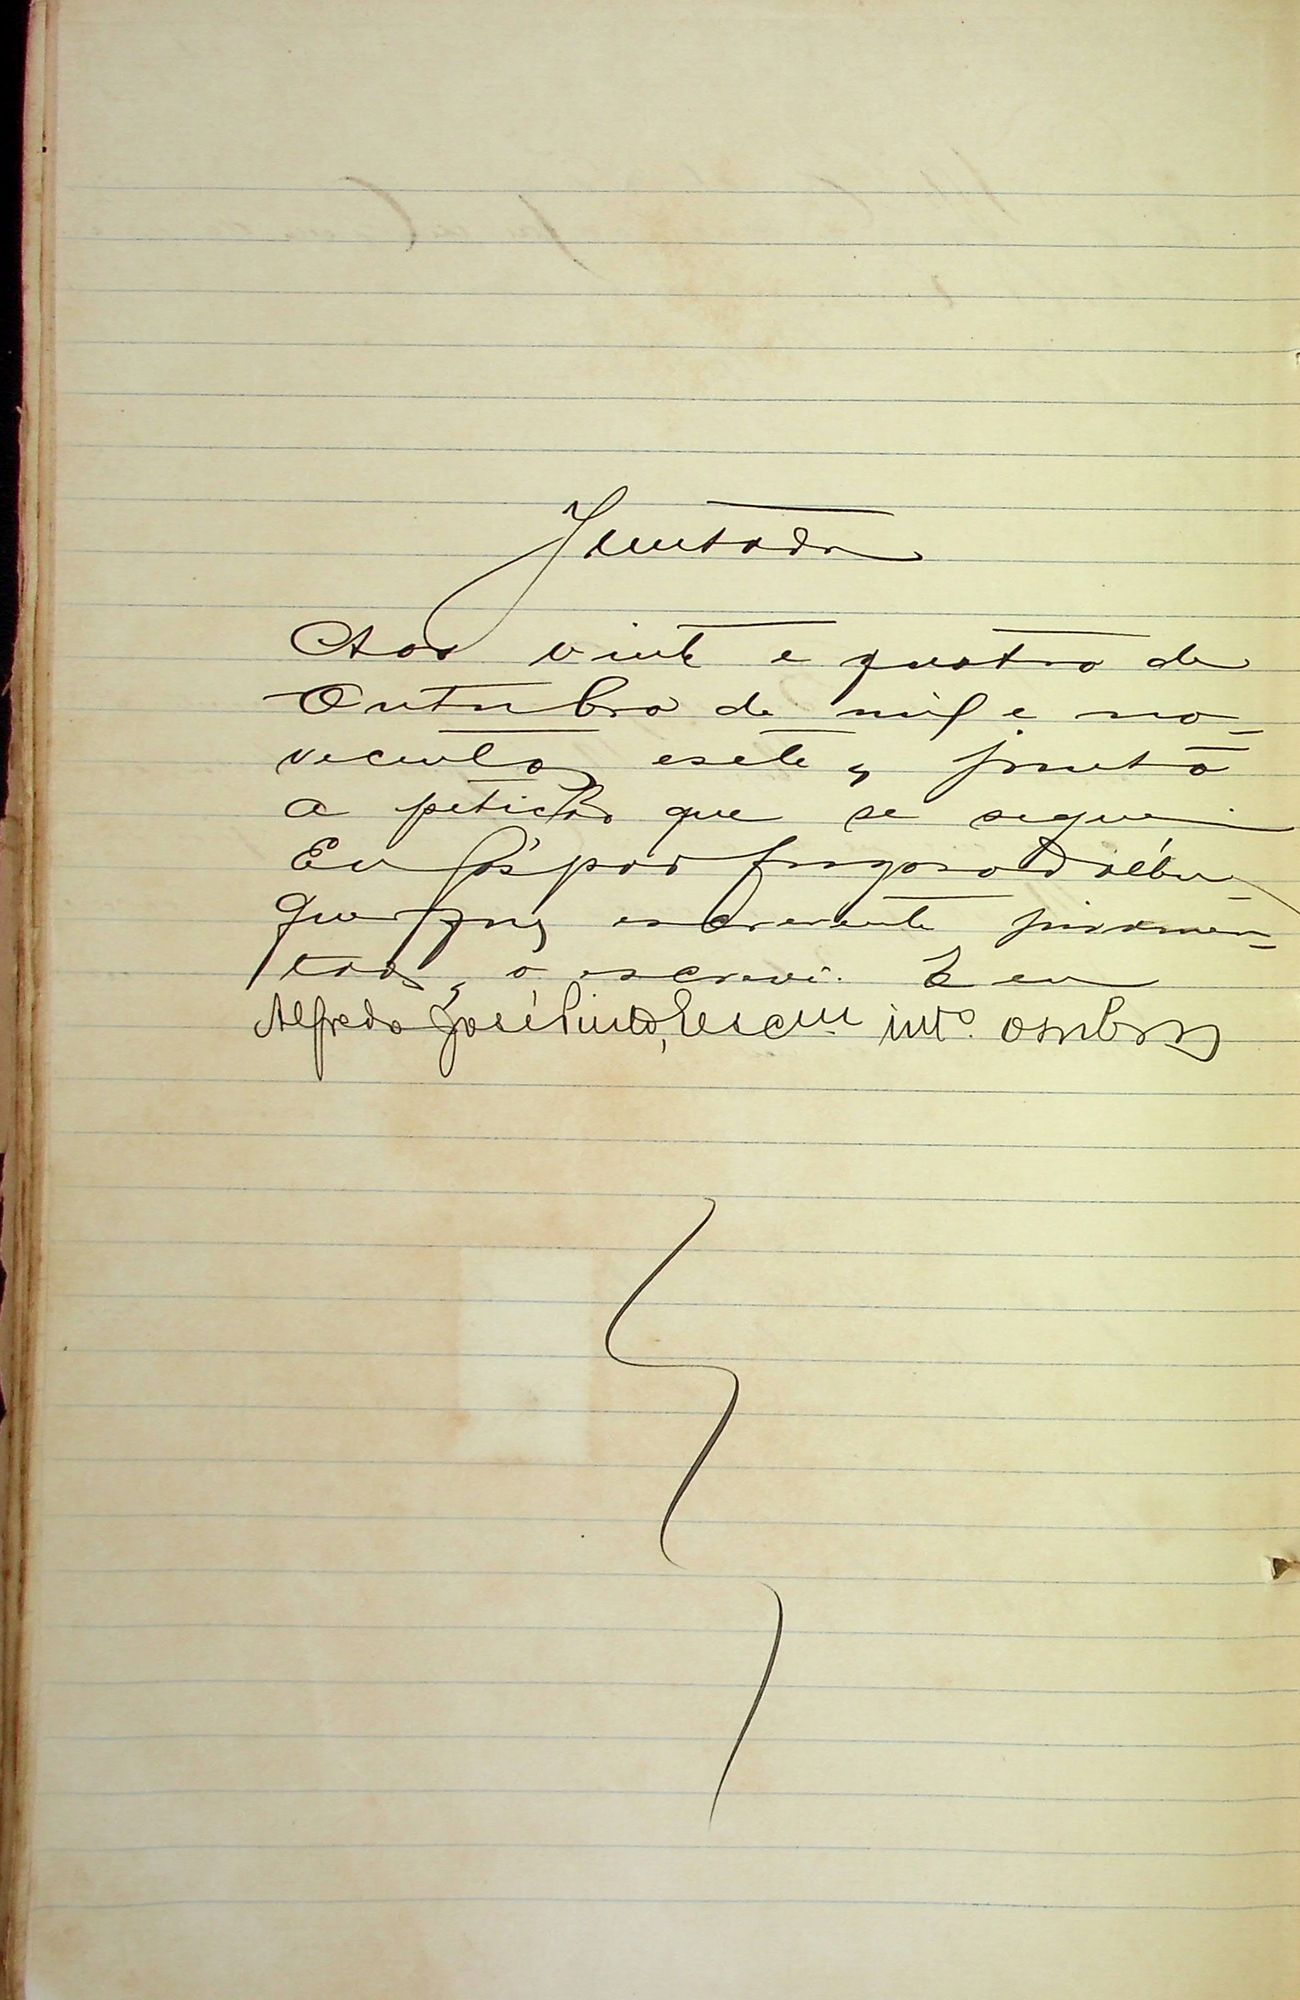 Juntada
Aos vinte e quatro de
Outubro de mil e no-
vecentos e sete, junto
a petição que se segue.
Eu Gaspar Fragoso d'Albu
querque, escrevente juramen-
tado, o escrevi. E eu
Alfredo José Pinto, Escam intº. osubscr